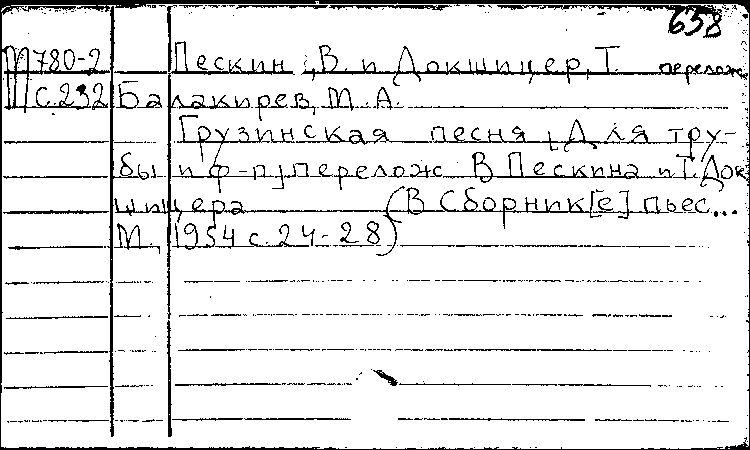 658
М780-2 Пескин, В. и Докшицер, Т. перелож
с.232 Балакирев, М. А.
Грузинская песня [Для тру-
бы и ф-п] перелож В Пескина и Т. Док
шицера (В Сборник[е] пьес...
М., 1954 с. 24-28)